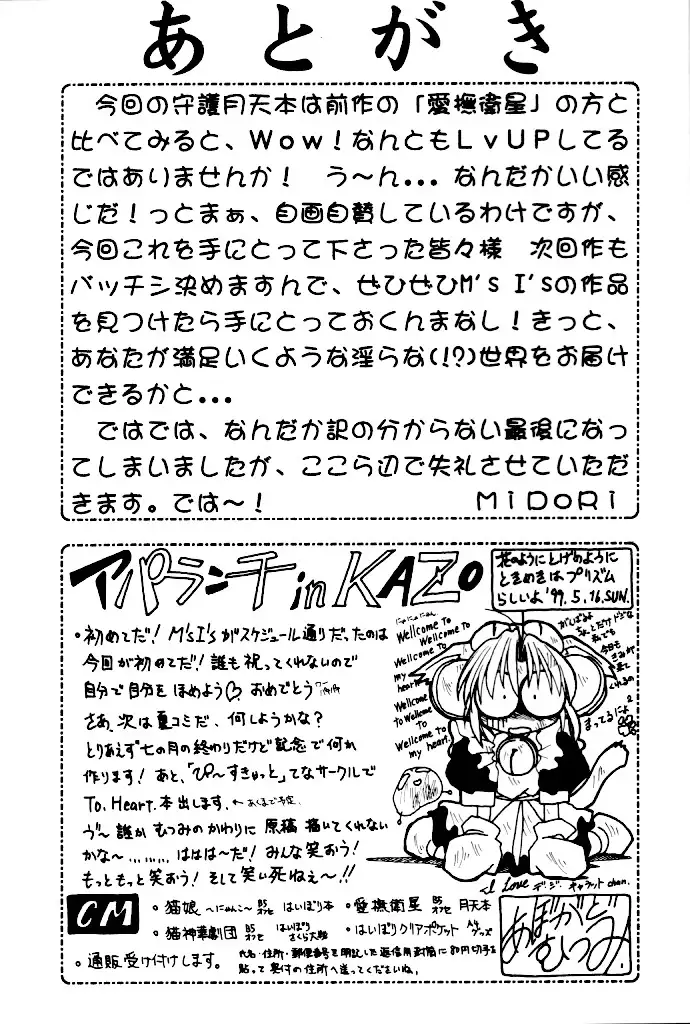 あとがき
今回の守護月天本は前作の「愛撫衛星」の方と
比べてみると、Wow！なんともLvUPしてる
ではありませんか！　う～ん...なんだかいい感
じだ！っとまぁ、自画自賛しているわけですが、
今回これを手にとって下さった皆々様　次回作も
バッチシ決めますんで、ぜひぜひM's I'sの作品
を見つけたら手にとっておくんまなし！きっと、
あなたが満足いくような淫らな(!?)世界をお届け
できるかと...
ではでは、なんだか訳の分からない最後になっ
てしまいましたが、ここら辺で失礼させていただ
きます。では～！　MiDoRi
アパランチ in KAZo
花のようにとげのように
ときめきはプリズム
らしいよ '99.5.16.SUN.
・初めてだ! M'sI'sがスケジュール通りだったのは
今回が初めてだ! 誰も祝ってくれないので
自分で自分をほめよう♡ おめでとう
さあ、次は夏コミだ、何しようかな?
とりあえず七の月の終わりだけど記念で何か
作ります! あと、「ぴ～すきゅっと」てなサークルで
To.Heart.本出します。←あくまで予定。
う゛～誰か むつみのかわりに 原稿 描いてくれない
かな～………ははは～だ! みんな笑おう!
もっともっと笑おう! そして笑い死ねぇ～!!
Wellcome To
Wellcome To
Wellcome To
my heart
Wellcome
to Wellcome
Wellcome to
my heart.
がんばるよ
まってるにょ
I Love デ・ジ・キャラット chan.
CM
・猫娘 ～にゃんこ～ B5オフセ はいぱり本
・愛撫衛星 B5オフセ 月天本
・猫神華劇団 B5オフセ はいぱり さくら大戦
・はいぱりクリアポケット
・通販受け付けします。
氏名・住所・郵便番号を明記した返信用封筒に80円切手を
貼って奥付の住所へ送ってくださいね。
あぼがど
むつみ!